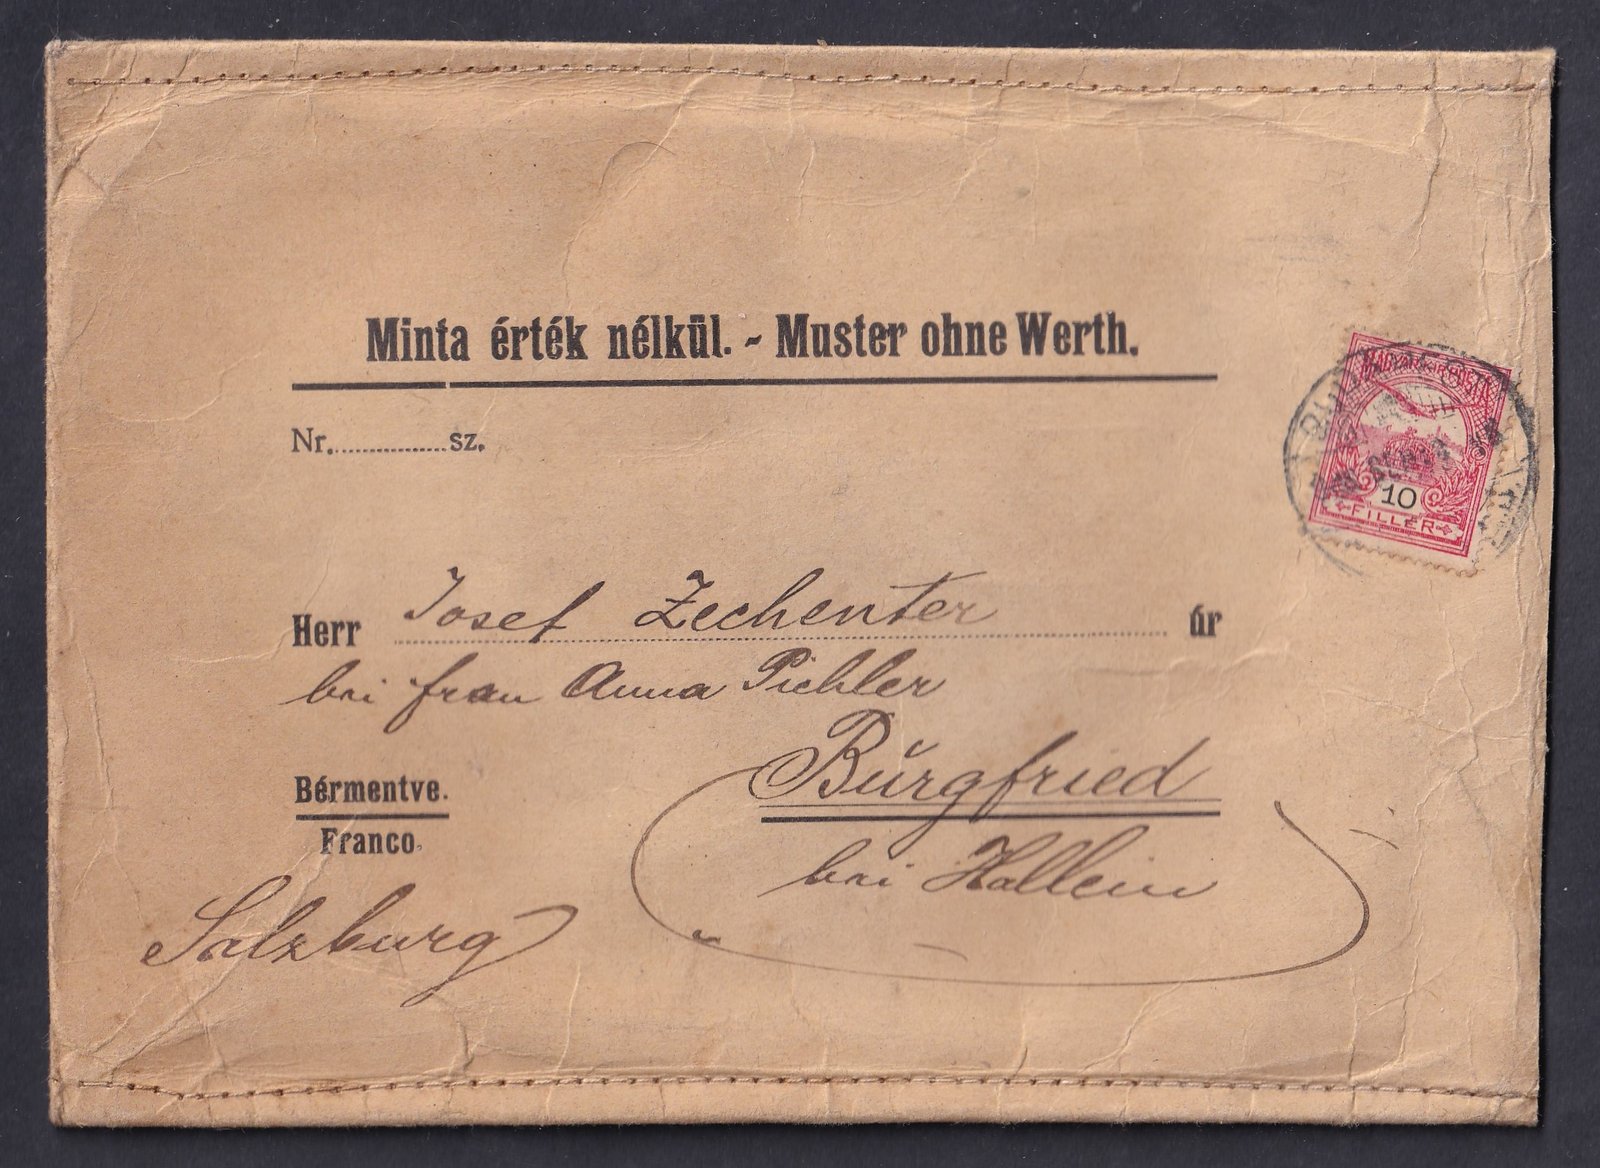 Minta érték nélkül. - Muster ohne Werth.
MAGYAR KIR. POSTA
10
FILLÉR
Nr. sz.
Herr Josef Zechenter úr
bei frau Anna Pichler
Bŭrgfried
bei Hallein
Bérmentve.
Franco.
Salzburg